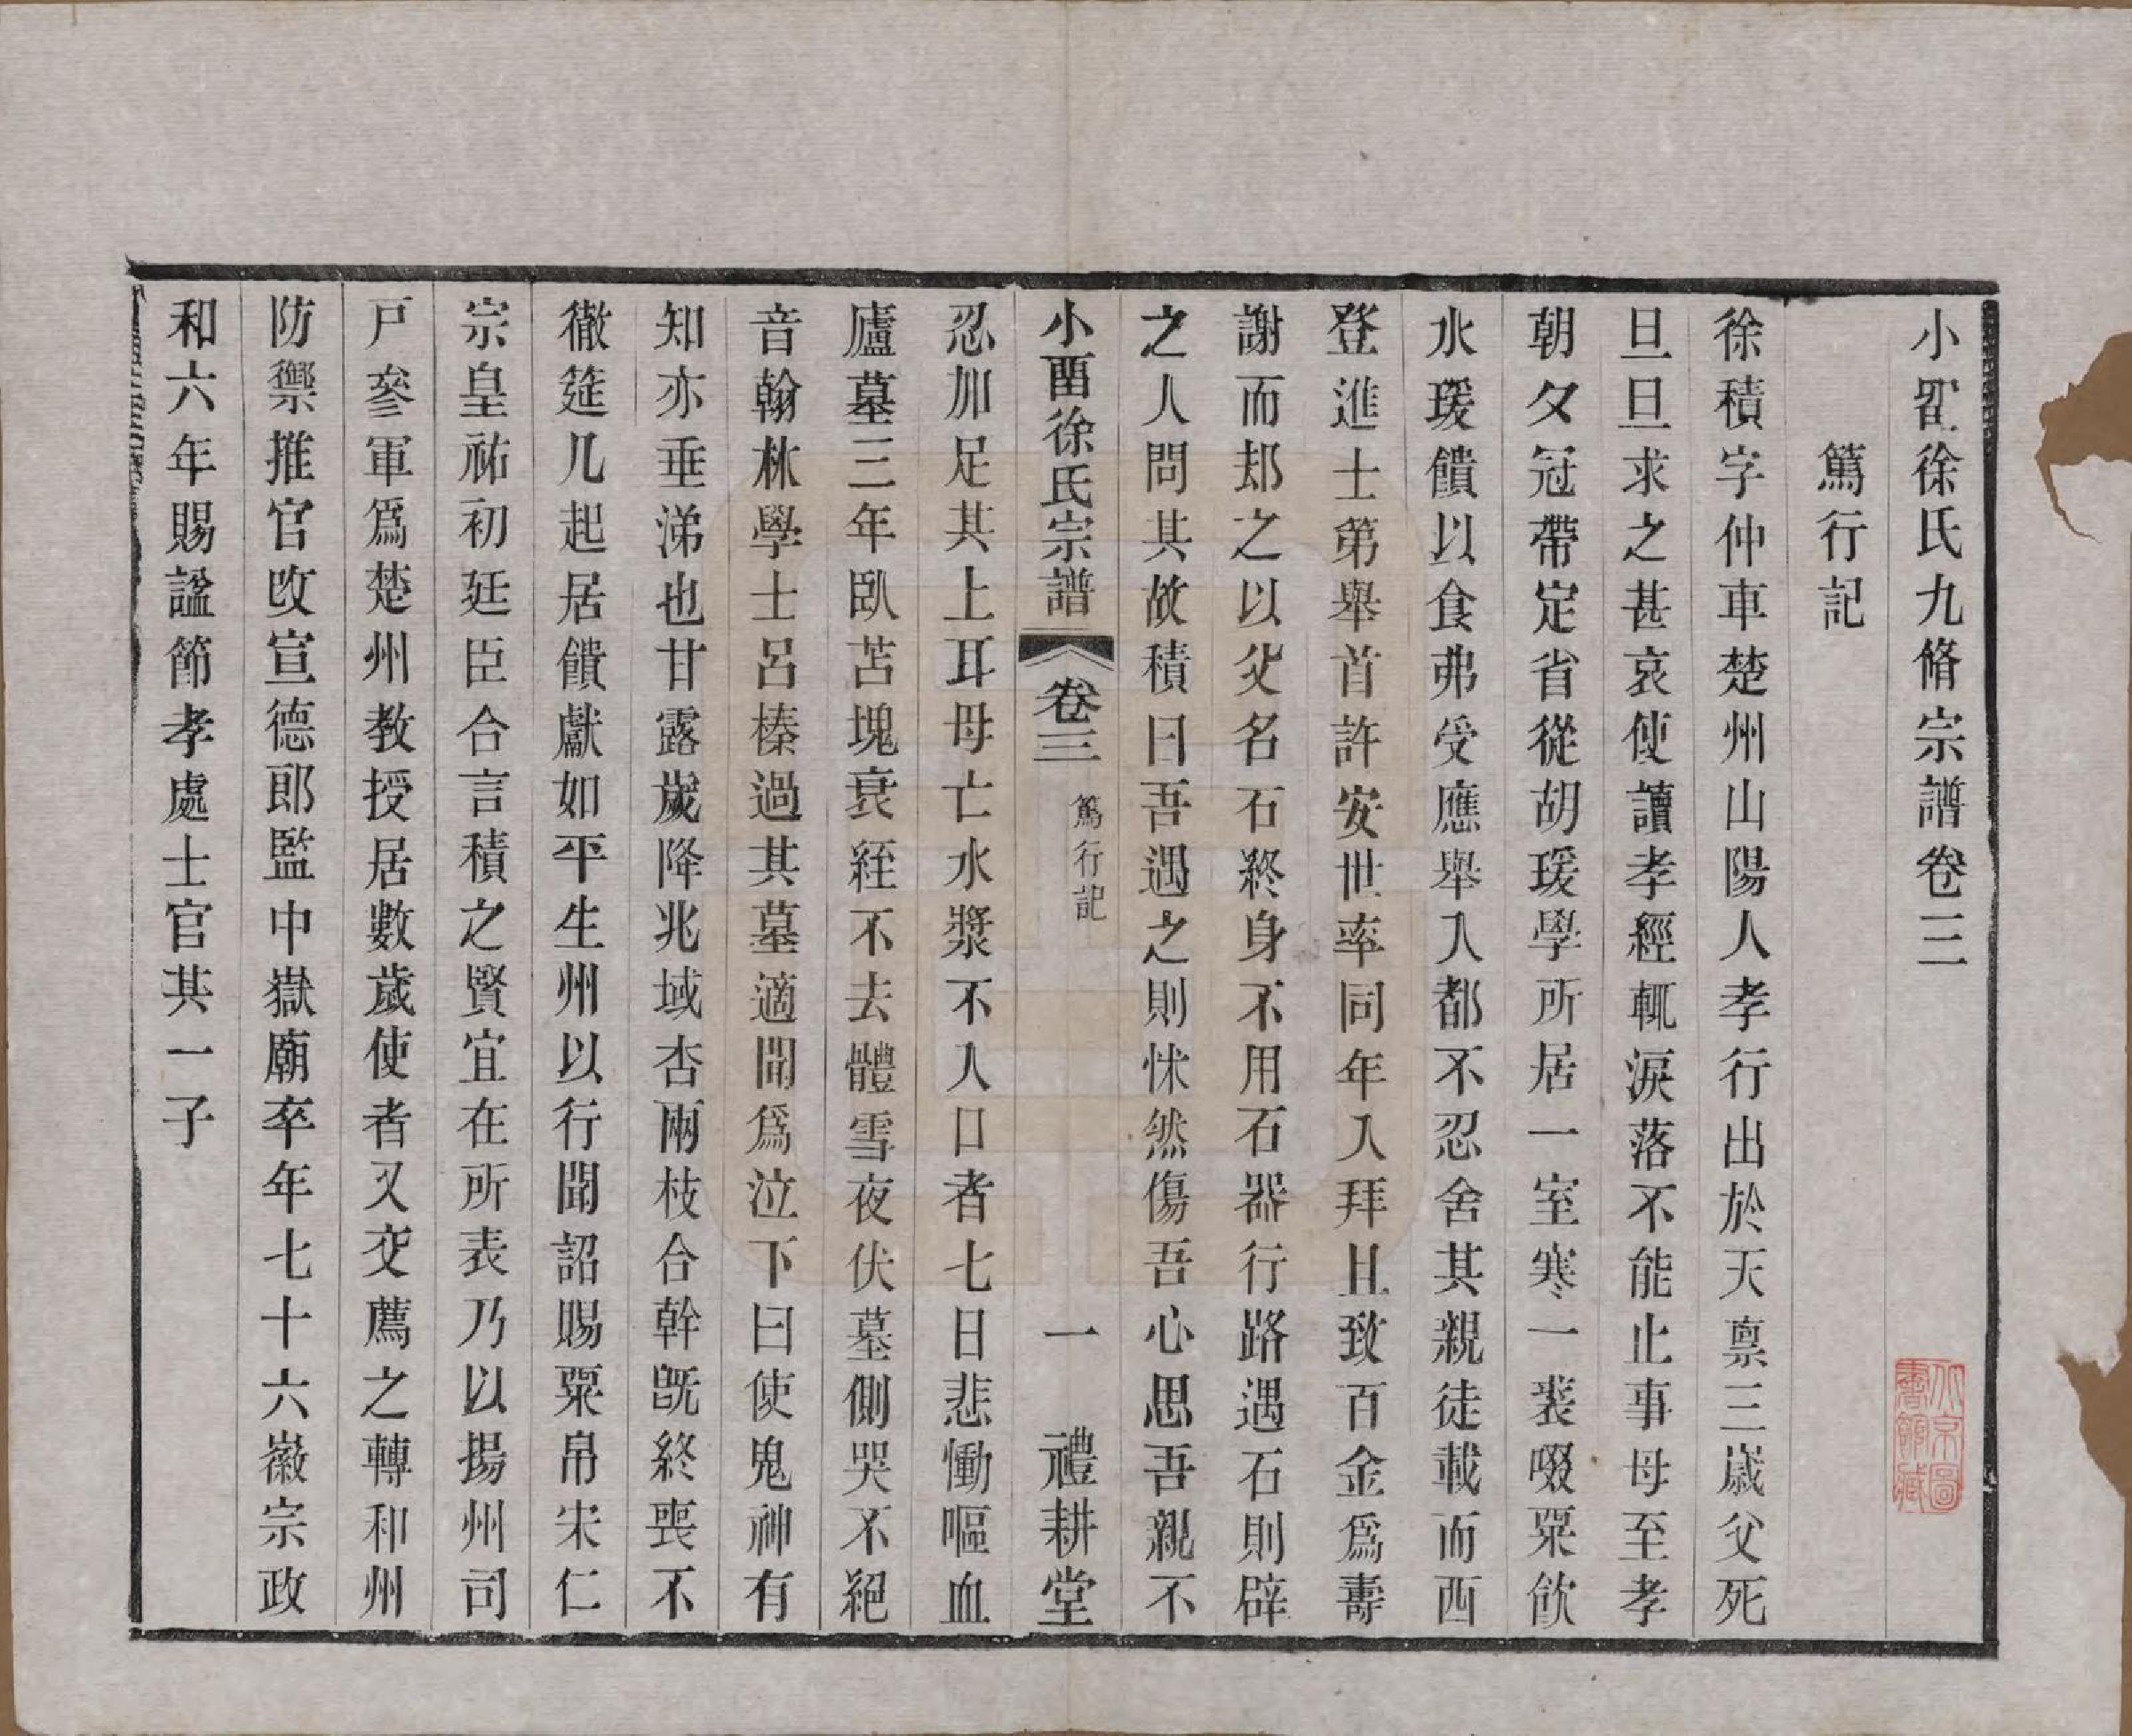 小畱徐氏九脩宗譜卷三
篤行記
徐積字仲車楚州山陽人孝行出於天禀三歲父死
旦旦求之甚哀使讀孝經輒淚落不能止事母至孝
朝夕冠帶定省從胡瑗學所居一室寒一裘啜粟飲
水瑗饋以食弗受應舉入都不忍舍其親徒載而西
登進士第舉首許安世率同年入拜且致百金爲壽
謝而却之以父名石終身不用石器行路遇石則辟
之人問其故積曰吾遇之則怵然傷吾心思吾親不
小畱徐氏宗譜 卷三 篤行記 一 禮耕堂
忍加足其上耳母亡水漿不入口者七日悲慟嘔血
廬墓三年臥苫塊衰絰不去體雪夜伏墓側哭不絕
音翰林學士呂榛過其墓適聞爲泣下曰使鬼神有
知亦垂涕也甘露歲降兆域杏兩枝合幹旣終喪不
徹筵几起居饋獻如平生州以行聞詔賜粟帛宋仁
宗皇祐初廷臣合言積之賢宜在所表乃以揚州司
戸參軍爲楚州教授居數歲使者又交薦之轉和州
防禦推官改宣德郎監中嶽廟卒年七十六徽宗政
和六年賜謚節孝處士官其一子
京圖書館藏